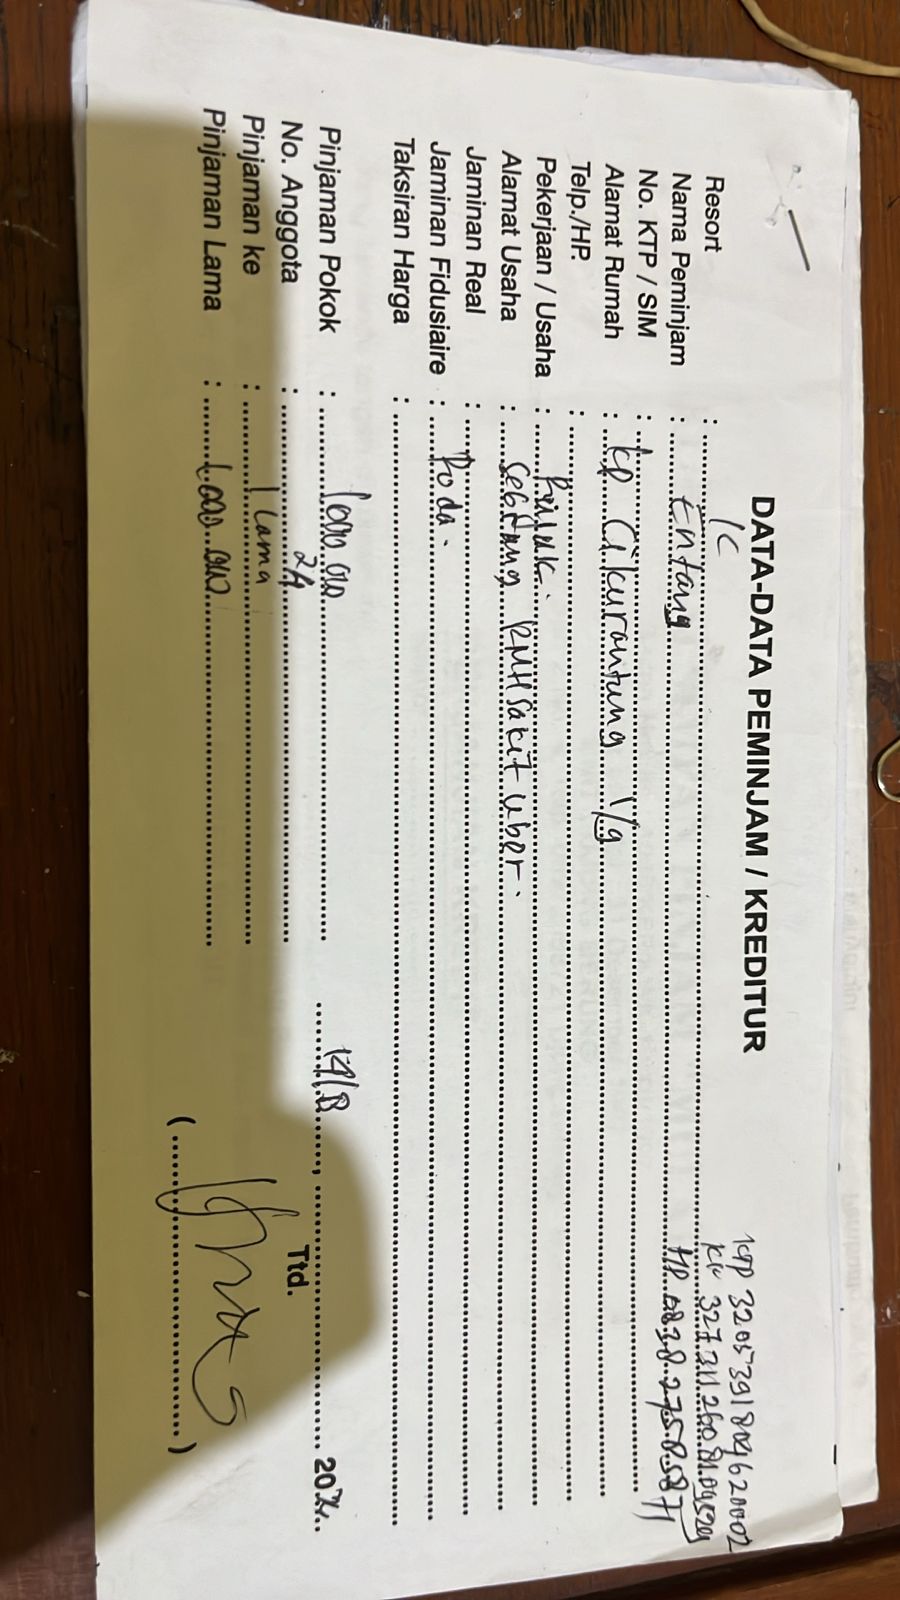 DATA-DATA PEMINJAM / KREDITUR
KTP 3205391804620002
KK 3273112608109529
HP 083827585871
Resort : IC
Nama Peminjam : Entang
No. KTP / SIM :
Alamat Rumah : kp Cikurantung 1/9
Telp./HP. :
Pekerjaan / Usaha : Rujak.
Alamat Usaha : Sebrang RMH Sakit Uber.
Jaminan Real :
Jaminan Fidusiaire : Roda.
Taksiran Harga :
Pinjaman Pokok : 1000.000
No. Anggota : 24
Pinjaman ke : 1 Lama
Pinjaman Lama : 1.000.000
, 20
Ttd.
( )